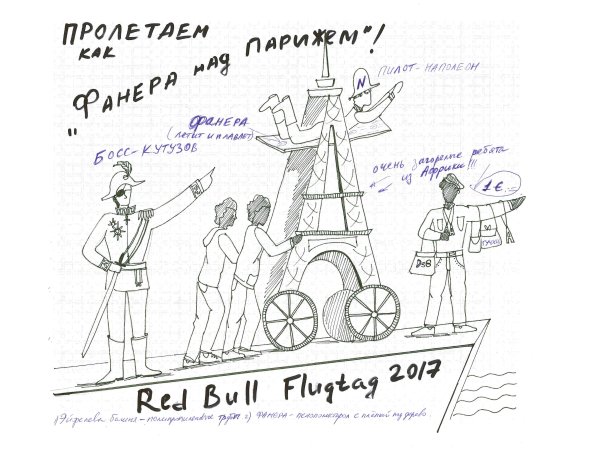 ПРОЛЕТАЕМ
КАК
"ФАНЕРА НАД ПАРИЖЕМ"!
ПИЛОТ-НАПОЛЕОН
N
ФАНЕРА
(ЛЕТИТ И ПЛАВАЕТ)
БОСС-КУТУЗОВ
очень загорелые ребята
из Африки!!!
1€
D&B
Red Bull Flugtag 2017
1) Эйфелева башня - полипропиленовые трубы 2) ФАНЕРА -